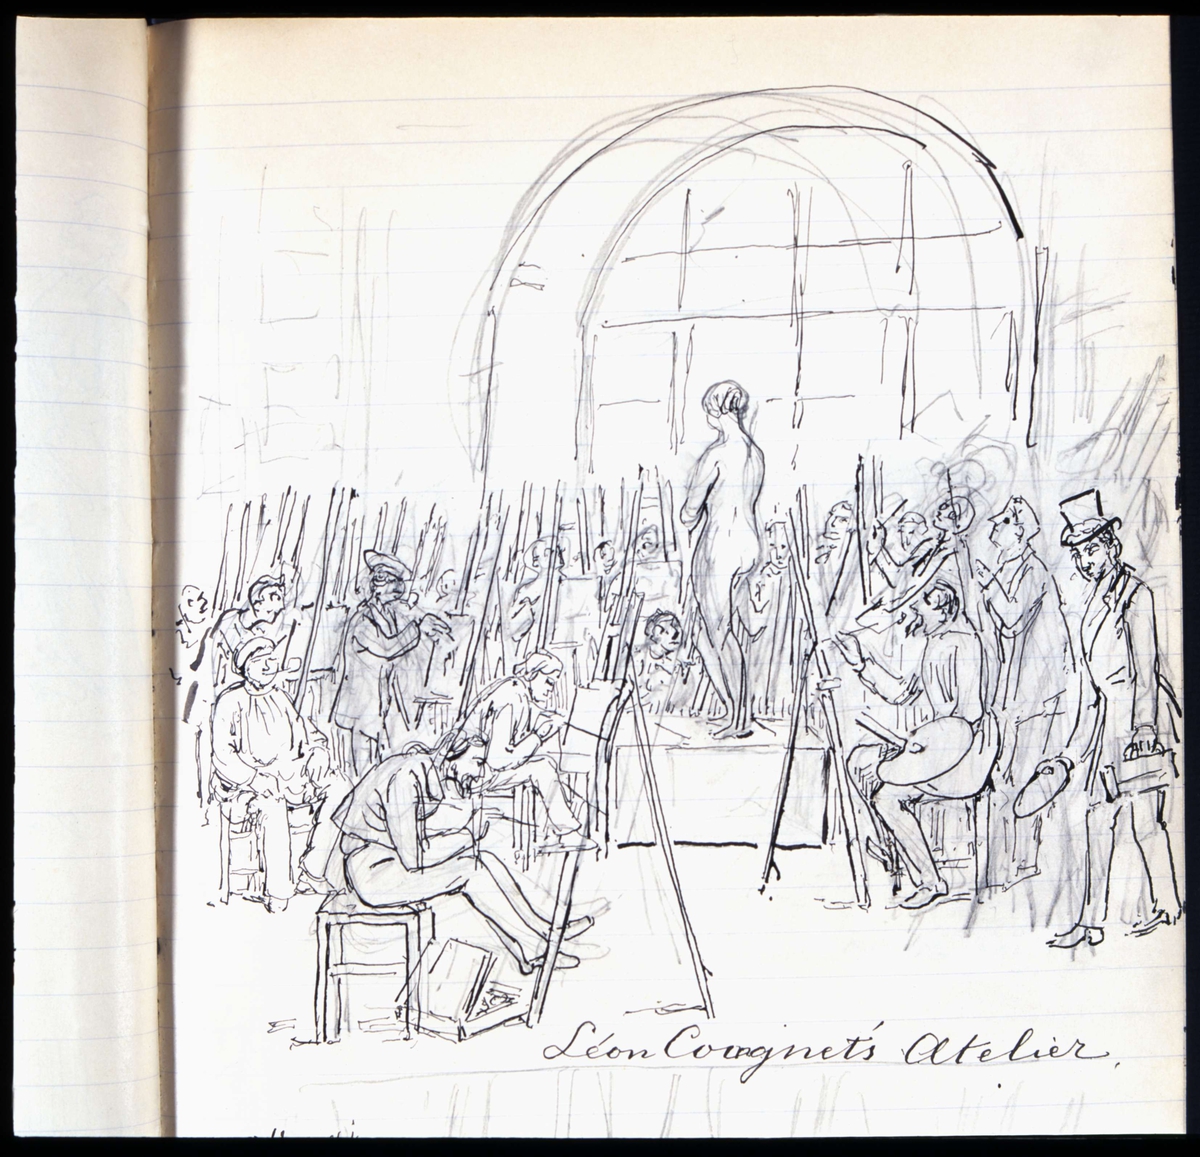 Léon Coognet's Atelier.